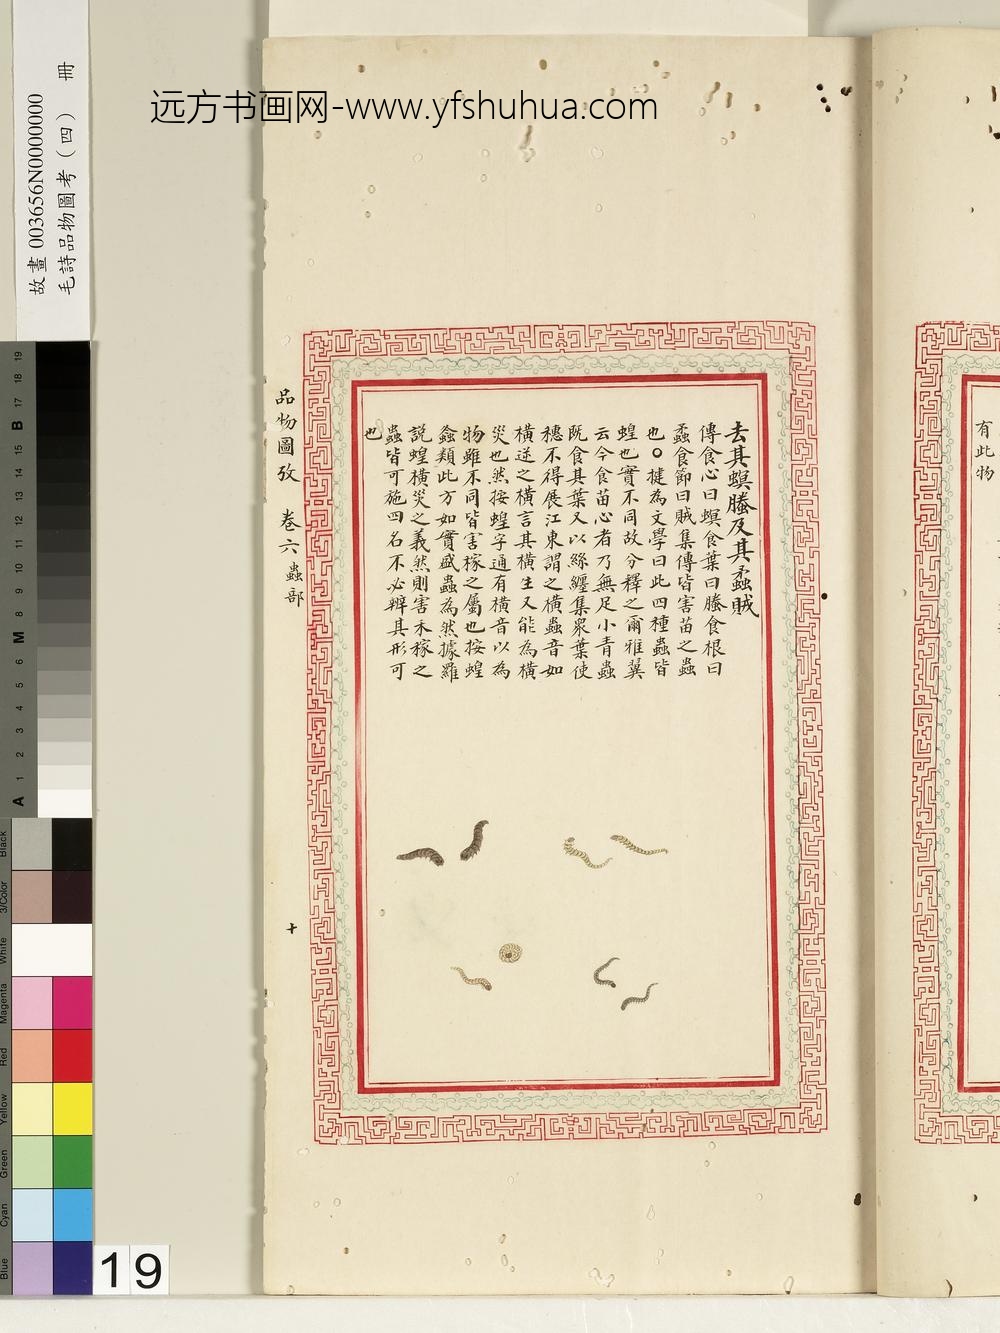 远方书画网-www.yfshuhua.com
故畫 003656N0000000
毛詩品物圖考（四） 冊
有此物
去其螟螣及其蟊賊
傳食心曰螟食葉曰螣食根曰
蟊食節曰賊集傳皆害苗之蟲
也○㨗為文學曰此四種蟲皆
蝗也實不同故分釋之爾雅翼
云今食苗心者乃無足小青蟲
既食其葉又以絲纏集衆葉使
穗不得展江東謂之橫蟲音如
橫逆之橫言其橫生又能為橫
災也然按蝗字通有橫音以為
物雖不同皆害稼之屬也按蝗
螽類此方如實盛蟲為然據羅
說蝗橫災之義然則害禾稼之
蟲皆可施四名不必辨其形可
也
品物圖攷 卷六 蟲部
十
19 18 17 B 15 14 13 12 11 10 9 8 M 6 5 4 3 2 1 A
Black
3/Color
White
Magenta
Red
Yellow
Green
Cyan
Blue
19